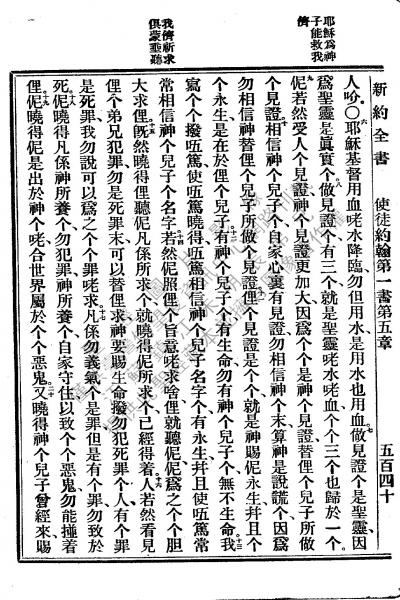 耶穌為神子能救我儕
我儕祈求俱蒙垂聽
新約全書 使徒約翰第一書第五章 五百四十
人吤〇耶穌基督用血咾水降臨勿但用水是用水也用血做見證个是聖靈因
爲聖靈是眞實个做見證个有三个就是聖靈咾水咾血个个三个也歸於一个
伲若然受人个見證神个見證更加大因爲个个是神个見證替俚个兒子所做
个見證相信神个兒子个自家心裏有見證勿相信神个末算神是說謊个因爲
勿相信神替俚个兒子所做个見證俚个見證是个个就是神賜伲永生幷且个
个永生是在於俚个兒子有神个兒子个有生命勿有神个兒子个無不生命我
寫个个撥唔篤使唔篤曉得唔篤相信神个兒子名字个有永生幷且使唔篤常
常相信神个兒子个名字若然伲照俚个旨意咾求啥俚就聽伲伲爲之个个胆
大求俚旣然曉得俚聽伲凡係所求个就曉得伲所求个已經得着人若然看見
俚个弟兄犯罪勿是死罪末可以替俚求神要賜生命撥勿犯死罪个人有个罪
是死罪我勿說可以爲之个个罪咾求凡係勿義氣个是罪但是有个罪勿致於
死伲曉得凡係神所養个勿犯罪神所養个自家守住以致个个惡鬼勿能捶着
俚伲曉得伲是出於神个咾合世界屬於个个惡鬼又曉得神个兒子曾經來賜